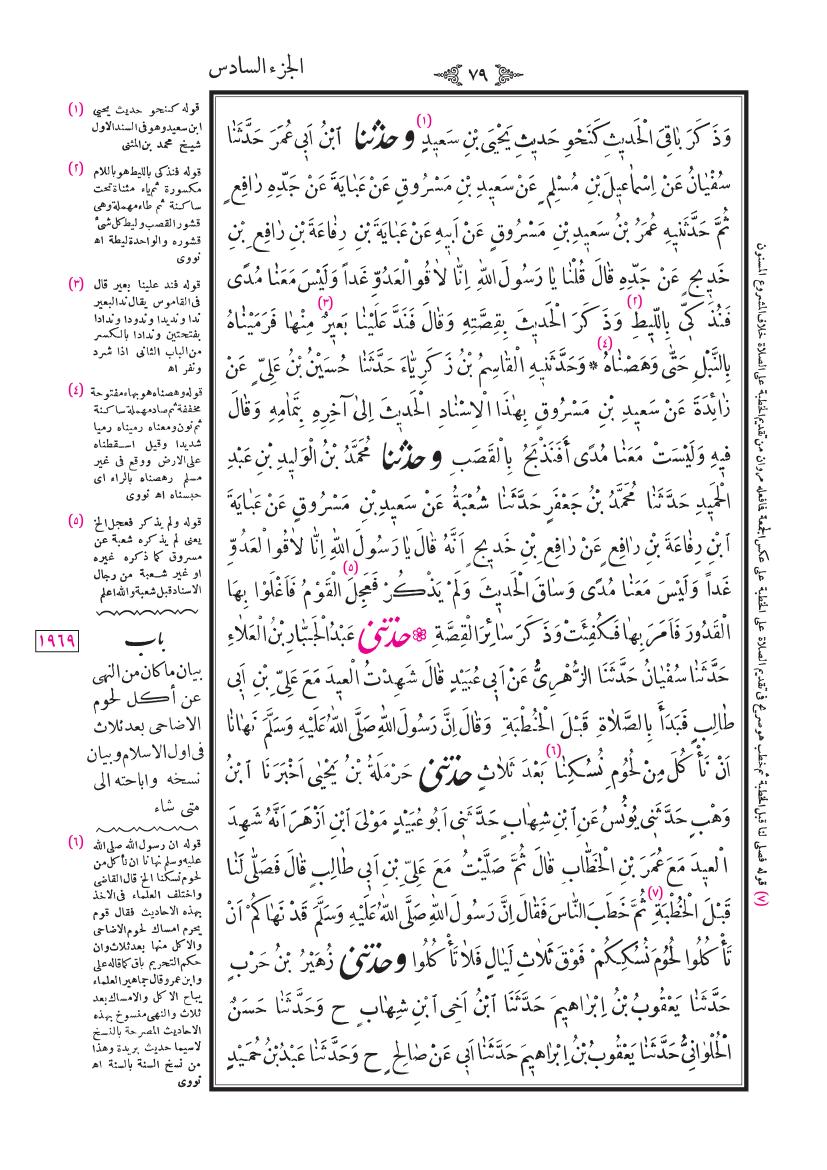 الجزء السادس
٧٩
وَذَكَرَ بَاقِىَ الْحَدِيثِ كَنَحْوِ حَدِيثِ يَحْيَى بْنِ سَعِيدٍ (١) وحدثنا ابْنُ اَبِى عُمَرَ حَدَّثَنَا
سُفْيَانُ عَنْ اِسْمَاعِيلَ بْنِ مُسْلِمٍ عَنْ سَعِيدِ بْنِ مَسْرُوقٍ عَنْ عَبَايَةَ عَنْ جَدِّهِ رَافِعٍ
ثُمَّ حَدَّثَنِيهِ عُمَرُ بْنُ سَعِيدِ بْنِ مَسْرُوقٍ عَنْ اَبِيهِ عَنْ عَبَايَةَ بْنِ رِفَاعَةَ بْنِ رَافِعِ بْنِ
خَدِيجٍ عَنْ جَدِّهِ قَالَ قُلْنَا يَا رَسُولَ اللهِ اِنَّا لاَقُو الْعَدُوِّ غَداً وَلَيْسَ مَعَنَا مُدًى
فَنُذَكِّى بِاللِّيطِ (٢) وَذَكَرَ الْحَدِيثَ بِقِصَّتِهِ وَقَالَ فَنَدَّ عَلَيْنَا بَعِيرٌ (٣) مِنْهَا فَرَمَيْنَاهُ
بِالنَّبْلِ حَتَّى وَهَصْنَاهُ (٤) * وَحَدَّثَنِيهِ الْقَاسِمُ بْنُ زَكَرِيَّاءَ حَدَّثَنَا حُسَيْنُ بْنُ عَلِىٍّ عَنْ
زَائِدَةَ عَنْ سَعِيدِ بْنِ مَسْرُوقٍ بِهٰذَا الْاِسْنَادِ الْحَدِيثَ اِلىٰ آخِرِهِ بِتَمَامِهِ وَقَالَ
فِيهِ وَلَيْسَتْ مَعَنَا مُدًى أَفَنَذْبَحُ بِالْقَصَبِ وحدثنا مُحَمَّدُ بْنُ الْوَلِيدِ بْنِ عَبْدِ
الْحَمِيدِ حَدَّثَنَا مُحَمَّدُ بْنُ جَعْفَرٍ حَدَّثَنَا شُعْبَةُ عَنْ سَعِيدِ بْنِ مَسْرُوقٍ عَنْ عَبَايَةَ
ابْنِ رِفَاعَةَ بْنِ رَافِعٍ عَنْ رَافِعِ بْنِ خَدِيجٍ اَنَّهُ قَالَ يَا رَسُولَ اللهِ اِنَّا لاَقُو الْعَدُوِّ
غَداً وَلَيْسَ مَعَنَا مُدًى وَسَاقَ الْحَدِيثَ وَلَمْ يَذْكُرْ فَعَجِلَ (٥) الْقَوْمُ فَاَغْلَوْا بِهَا
الْقُدُورَ فَاَمَرَ بِهَا فَكُفِئَتْ وَذَكَرَ سَائِرَ الْقِصَّةِ * حدثنى عَبْدُ الْجَبَّارِ بْنُ الْعَلاَءِ
حَدَّثَنَا سُفْيَانُ حَدَّثَنَا الزُّهْرِىُّ عَنْ اَبِى عُبَيْدٍ قَالَ شَهِدْتُ الْعِيدَ مَعَ عَلِىِّ بْنِ اَبِى
طَالِبٍ فَبَدَأَ بِالصَّلاَةِ قَبْلَ الْخُطْبَةِ وَقَالَ اِنَّ رَسُولَ اللهِ صَلَّى اللهُ عَلَيْهِ وَسَلَّمَ نَهَانَا
اَنْ نَأْكُلَ مِنْ لُحُومِ نُسُكِنَا (٦) بَعْدَ ثَلاَثٍ حدثنى حَرْمَلَةُ بْنُ يَحْيٰى اَخْبَرَنَا ابْنُ
وَهْبٍ حَدَّثَنِى يُونُسُ عَنِ ابْنِ شِهَابٍ حَدَّثَنِى اَبُو عُبَيْدٍ مَوْلَى ابْنِ اَزْهَرَ اَنَّهُ شَهِدَ
الْعِيدَ مَعَ عُمَرَ بْنِ الْخَطَّابِ قَالَ ثُمَّ صَلَّيْتُ مَعَ عَلِىِّ بْنِ اَبِى طَالِبٍ قَالَ فَصَلَّى لَنَا
قَبْلَ الْخُطْبَةِ (٧) ثُمَّ خَطَبَ النَّاسَ فَقَالَ اِنَّ رَسُولَ اللهِ صَلَّى اللهُ عَلَيْهِ وَسَلَّمَ قَدْ نَهَاكُمْ اَنْ
تَأْكُلُوا لُحُومَ نُسُكِكُمْ فَوْقَ ثَلاَثِ لَيَالٍ فَلاَ تَأْكُلُوا وحدثنى زُهَيْرُ بْنُ حَرْبٍ
حَدَّثَنَا يَعْقُوبُ بْنُ اِبْرَاهِيمَ حَدَّثَنَا ابْنُ اَخِى ابْنِ شِهَابٍ ح وَحَدَّثَنَا حَسَنٌ
الْحُلْوَانِىُّ حَدَّثَنَا يَعْقُوبُ بْنُ اِبْرَاهِيمَ حَدَّثَنَا اَبِى عَنْ صَالِحٍ ح وَحَدَّثَنَا عَبْدُ بْنُ حُمَيْدٍ
(١) قوله كنحو حديث يحيى
ابن سعيد وهو فى السند الاول
شيخ محمد بن المثنى
(٢) قوله فنذكى بالليط هو باللام
مكسورة ثم ياء مثناة تحت
ساكنة ثم طاء مهملة وهى
قشور القصب وليط كل شئ
قشوره والواحدة ليطة اه
نووى
(٣) قوله فند علينا بعير قال
فى القاموس يقال ند البعير
ندا ونديدا وندودا وندادا
بفتحتين وندادا بالكسر
من الباب الثانى اذا شرد
ونفر اه
(٤) قوله وهصناه هو بهاء مفتوحة
مخففة ثم صاد مهملة ساكنة
ثم نون ومعناه رميناه رميا
شديدا وقيل اسقطناه
على الارض ووقع فى غير
مسلم رهصناه بالراء اى
حبسناه اه نووى
(٥) قوله ولم يذكر فعجل الخ
يعنى لم يذكره شعبة عن
مسروق كما ذكره غيره
او غير شعبة من رجال
الاسناد قبل شعبة والله اعلم
١٩٦٩
باب
بيان ما كان من النهى
عن أكل لحوم
الاضاحى بعد ثلاث
فى اول الاسلام وبيان
نسخه واباحته الى
متى شاء
(٦) قوله ان رسول الله صلى الله
عليه وسلم نهانا ان نأكل من
لحوم نسكنا الخ قال القاضى
واختلف العلماء فى الاخذ
بهذه الاحاديث فقال قوم
يحرم امساك لحوم الاضاحى
والاكل منها بعد ثلاث وان
حكم التحريم باق كما قاله على
وابن عمر وقال جماهير العلماء
يباح الاكل والامساك بعد
ثلاث والنهى منسوخ بهذه
الاحاديث المصرحة بالنسخ
لاسيما حديث بريدة وهذا
من نسخ السنة بالسنة اه
نووى
(٧) قوله فصلى لنا قبل الخطبة ثم خطب هو صريح فى تقديم الصلاة على الخطبة على عكس الجمعة فافعله مروان من تقديم الخطبة على الصلاة خلاف المشروع المسنون